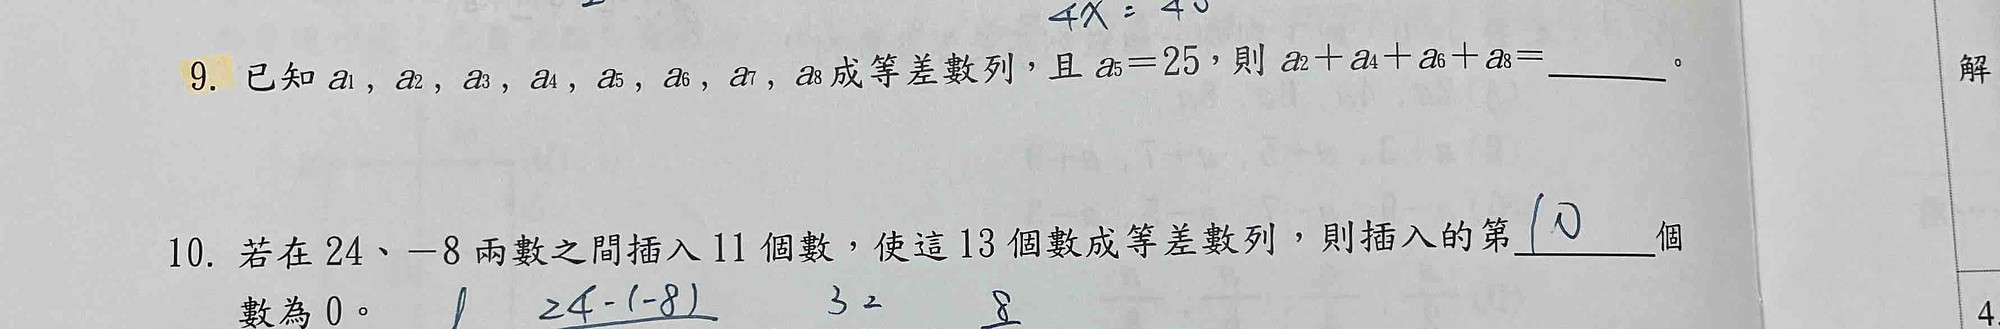 4x = 40
9. 已知 a1, a2, a3, a4, a5, a6, a7, a8成等差數列，且 a5=25，則 a2+a4+a6+a8=______。
解
10. 若在 24、-8 兩數之間插入 11 個數，使這 13 個數成等差數列，則插入的第 10 個
數為 0。
24-(-8) 32 8
4.